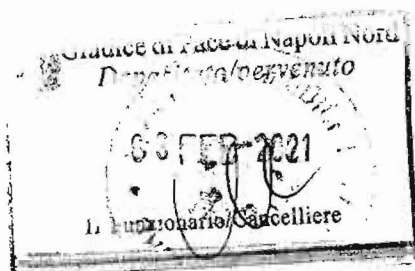 Giudice di Pace di Napoli Nord
Depositato/pervenuto
FEB 2021
Il Funzionario/Cancelliere